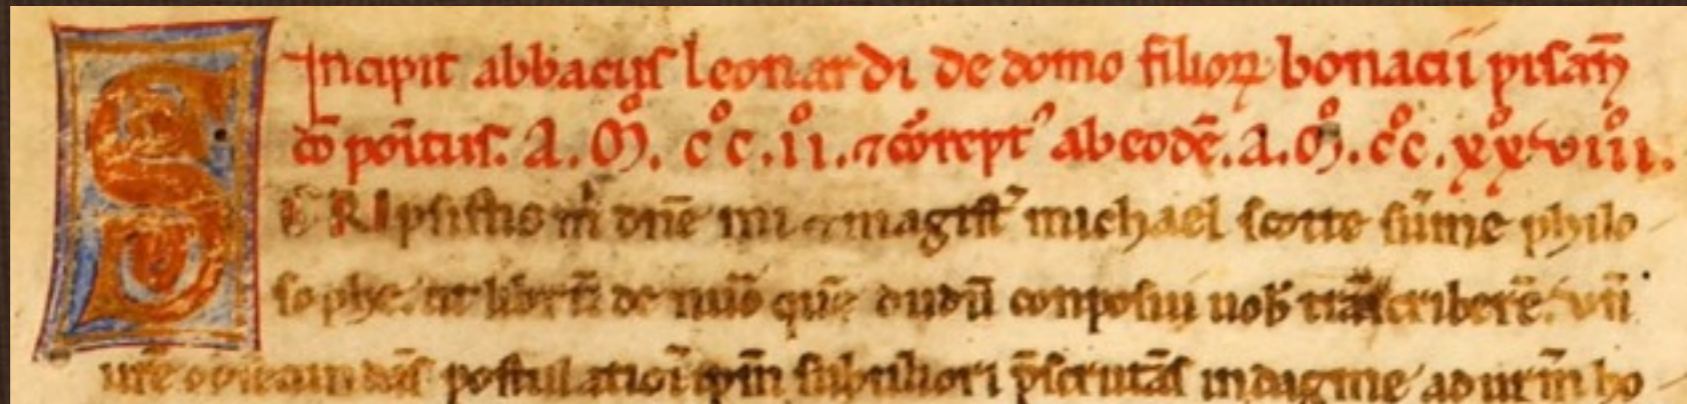 Incipit abbacus leonardi de domo filioꝝ bonacii pisanꝫ
cō poı̄tus. A. M̊. c̊c. ıı̊. ⁊ cōrept᾽ ab eodē. a. M̊. c̊c. xx̊vııı̊.
S CRIpsistis m̄ dn̄e mi ⁊ magist̄ michael scotte sūme philo
sophe. ut libꝛū de nūo quē dudū conposui uob̄ trāscriberē. vn̄
ur̄e obsecundās postulatiōi ip̄m subtiliori p̄scrutās indagine ad ur̄m ho